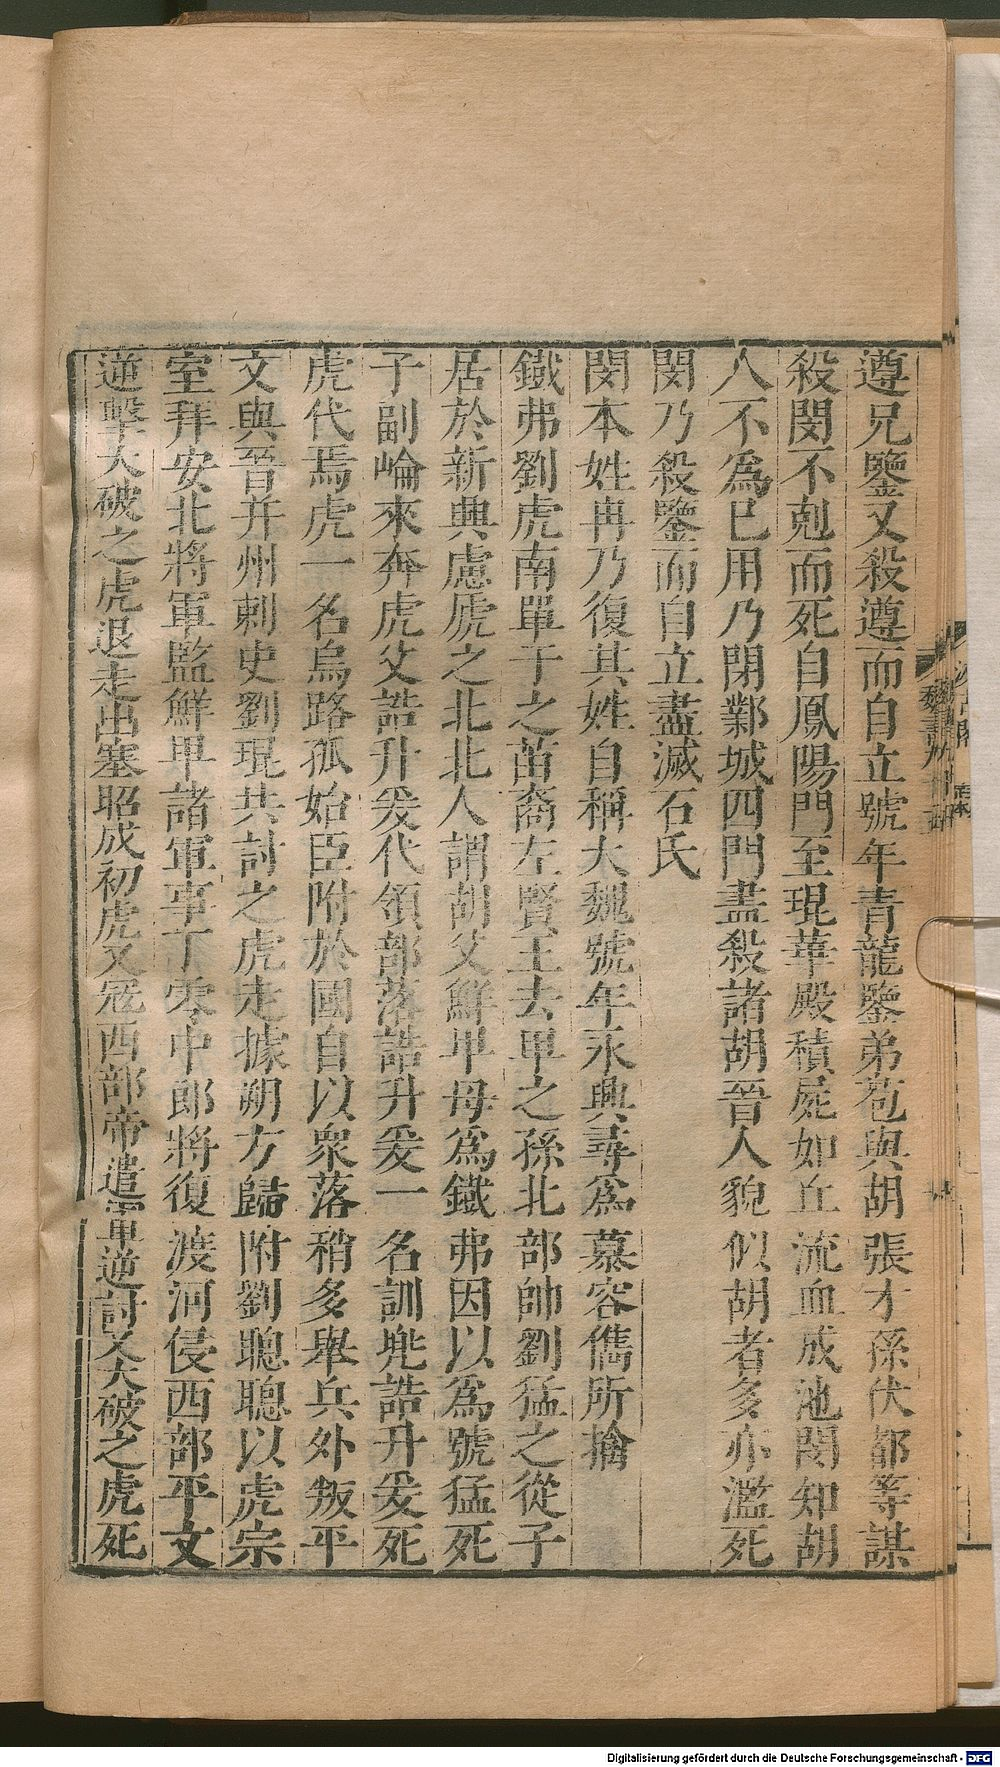 遵兄鑒又殺遵而自立號年青龍鑒弟苞與胡張才孫伏都等謀
殺閔不剋而死自鳳陽門至琨華殿積屍如丘流血成池閔知胡
人不爲已用乃閉鄴城四門盡殺諸胡晉人貌似胡者多亦濫死
閔乃殺鑒而自立盡滅石氏
閔本姓冉乃復其姓自稱大魏號年永興尋爲慕容儁所擒
鐵弗劉虎南單于之苗裔左賢王去卑之孫北部帥劉猛之從子
居於新興慮虒之北北人謂胡父鮮卑母爲鐵弗因以爲號猛死
子副崘來奔虎父誥升爰代領部落誥升爰一名訓兠誥升爰死
虎代焉虎一名烏路孤始臣附於國自以衆落稍多舉兵外叛平
文與晉并州刺史劉琨共討之虎走據朔方歸附劉聰聰以虎宗
室拜安北將軍監鮮卑諸軍事丁零中郎將復渡河侵西部平文
逆擊大破之虎退走出塞昭成初虎又寇西部帝遣軍逆討又大破之虎死
魏書九十五
Digitalisierung gefördert durch die Deutsche Forschungsgemeinschaft - DFG